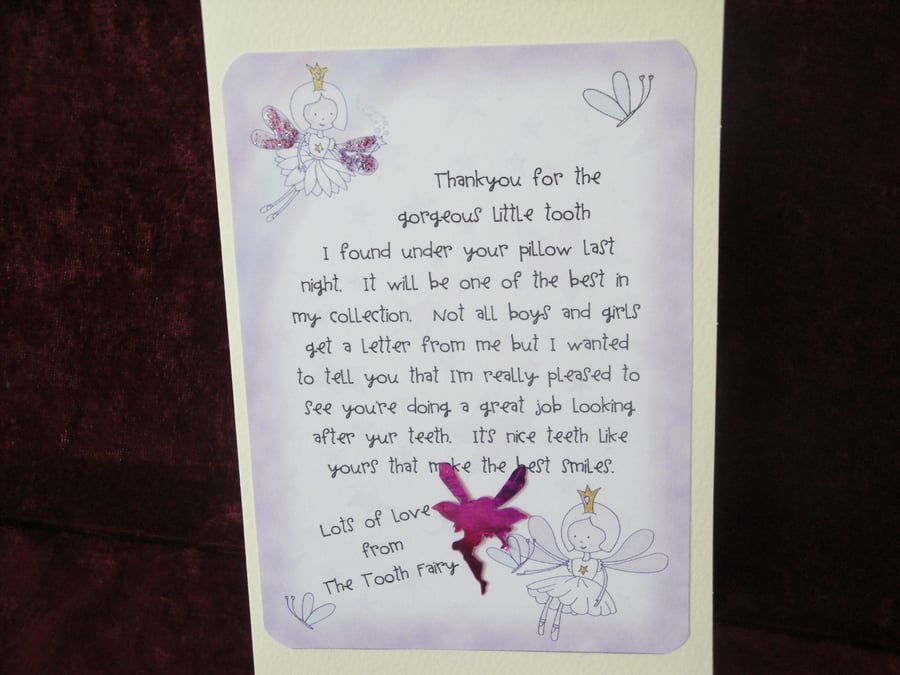 Thankyou for the
gorgeous little tooth
I found under your pillow last
night. It will be one of the best in
my collection. Not all boys and girls
get a letter from me but I wanted
to tell you that I'm really pleased to
see you're doing a great job looking
after yur teeth. It's nice teeth like
yours that make the best smiles.
Lots of love
from
The Tooth Fairy